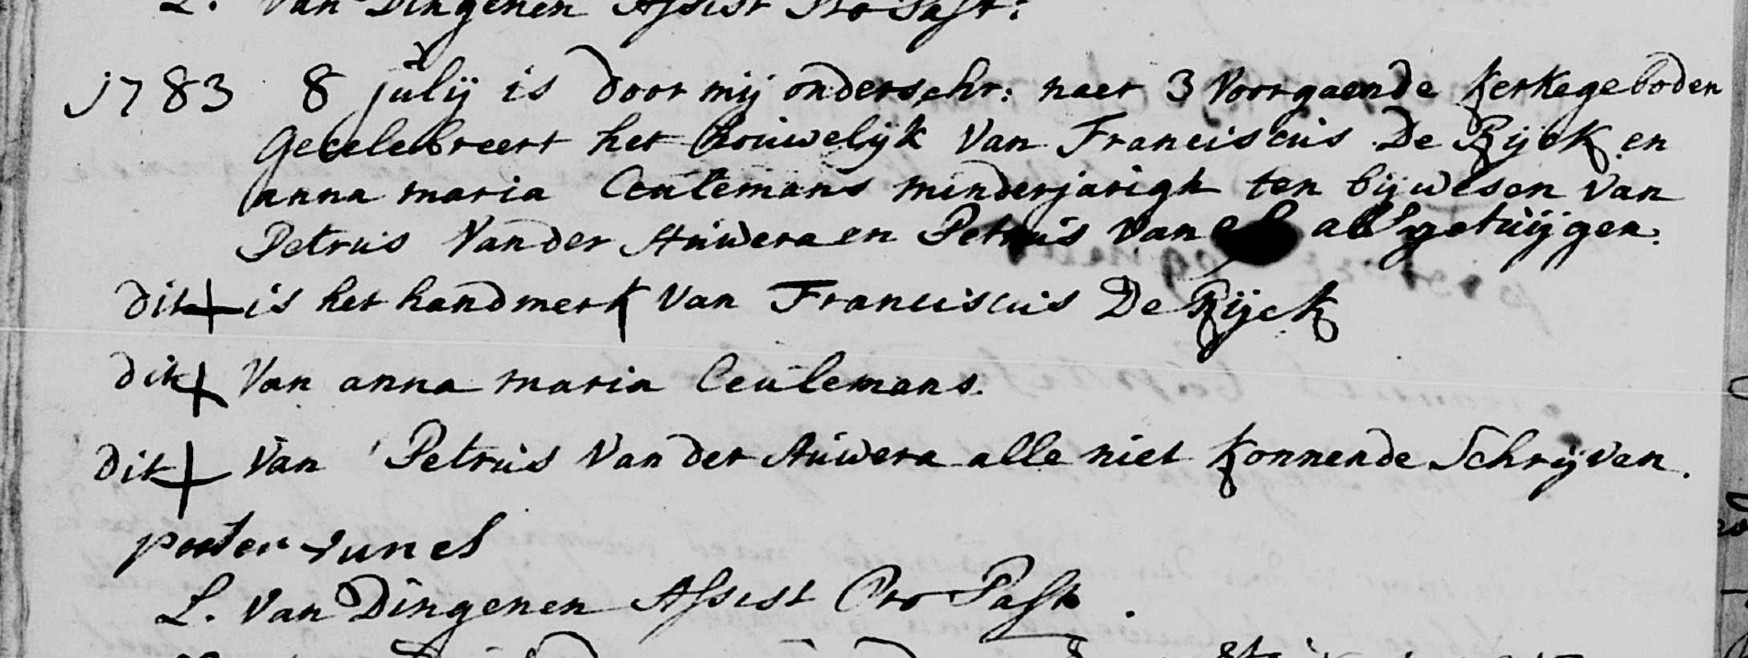 L. Van Dingenen Assist Pro Past:
1783 8 julij is door mij onderschr: naer 3 voorgaende kerkegeboden
Gecelebreert het houwelijk van Franciscus De Rijck en
anna maria Ceulemans minderjarigh ten bijwesen van
Petrus Vander Auwera en Petrus Van als getuijgen.
dit + is het handmerk van Franciscus De Rijck
dit + Van anna maria Ceulemans.
dit + Van Petrus Vander Auwera alle niet konnende Schrijven.
peeter vanes
L. Van Dingenen Assist Pro Past.